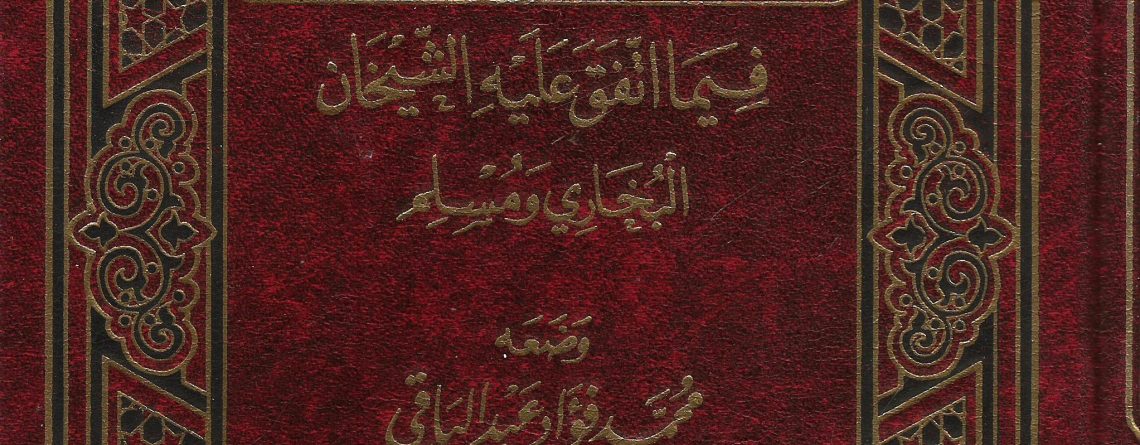 فِيمَا اتَّفَقَ عَلَيْهِ الشَّيْخَان
البُخَارِي وَمُسْلِم
وَضَعَه
مُحَمَّد فُؤَاد عَبْد البَاقِي